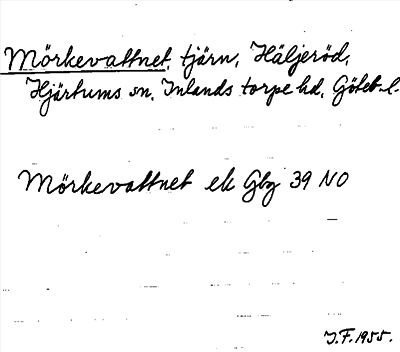 Mörkevattnet, tjärn, Häljeröd,
Hjärtums sn, Inlands torpe hd, Göteb. l.
Mörkevattnet ek Gbg 39 NO
J.F. 1955.